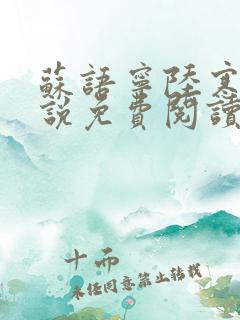 蘇語寧陸寒
說免費閱讀
十而
未任同意禁止轉載